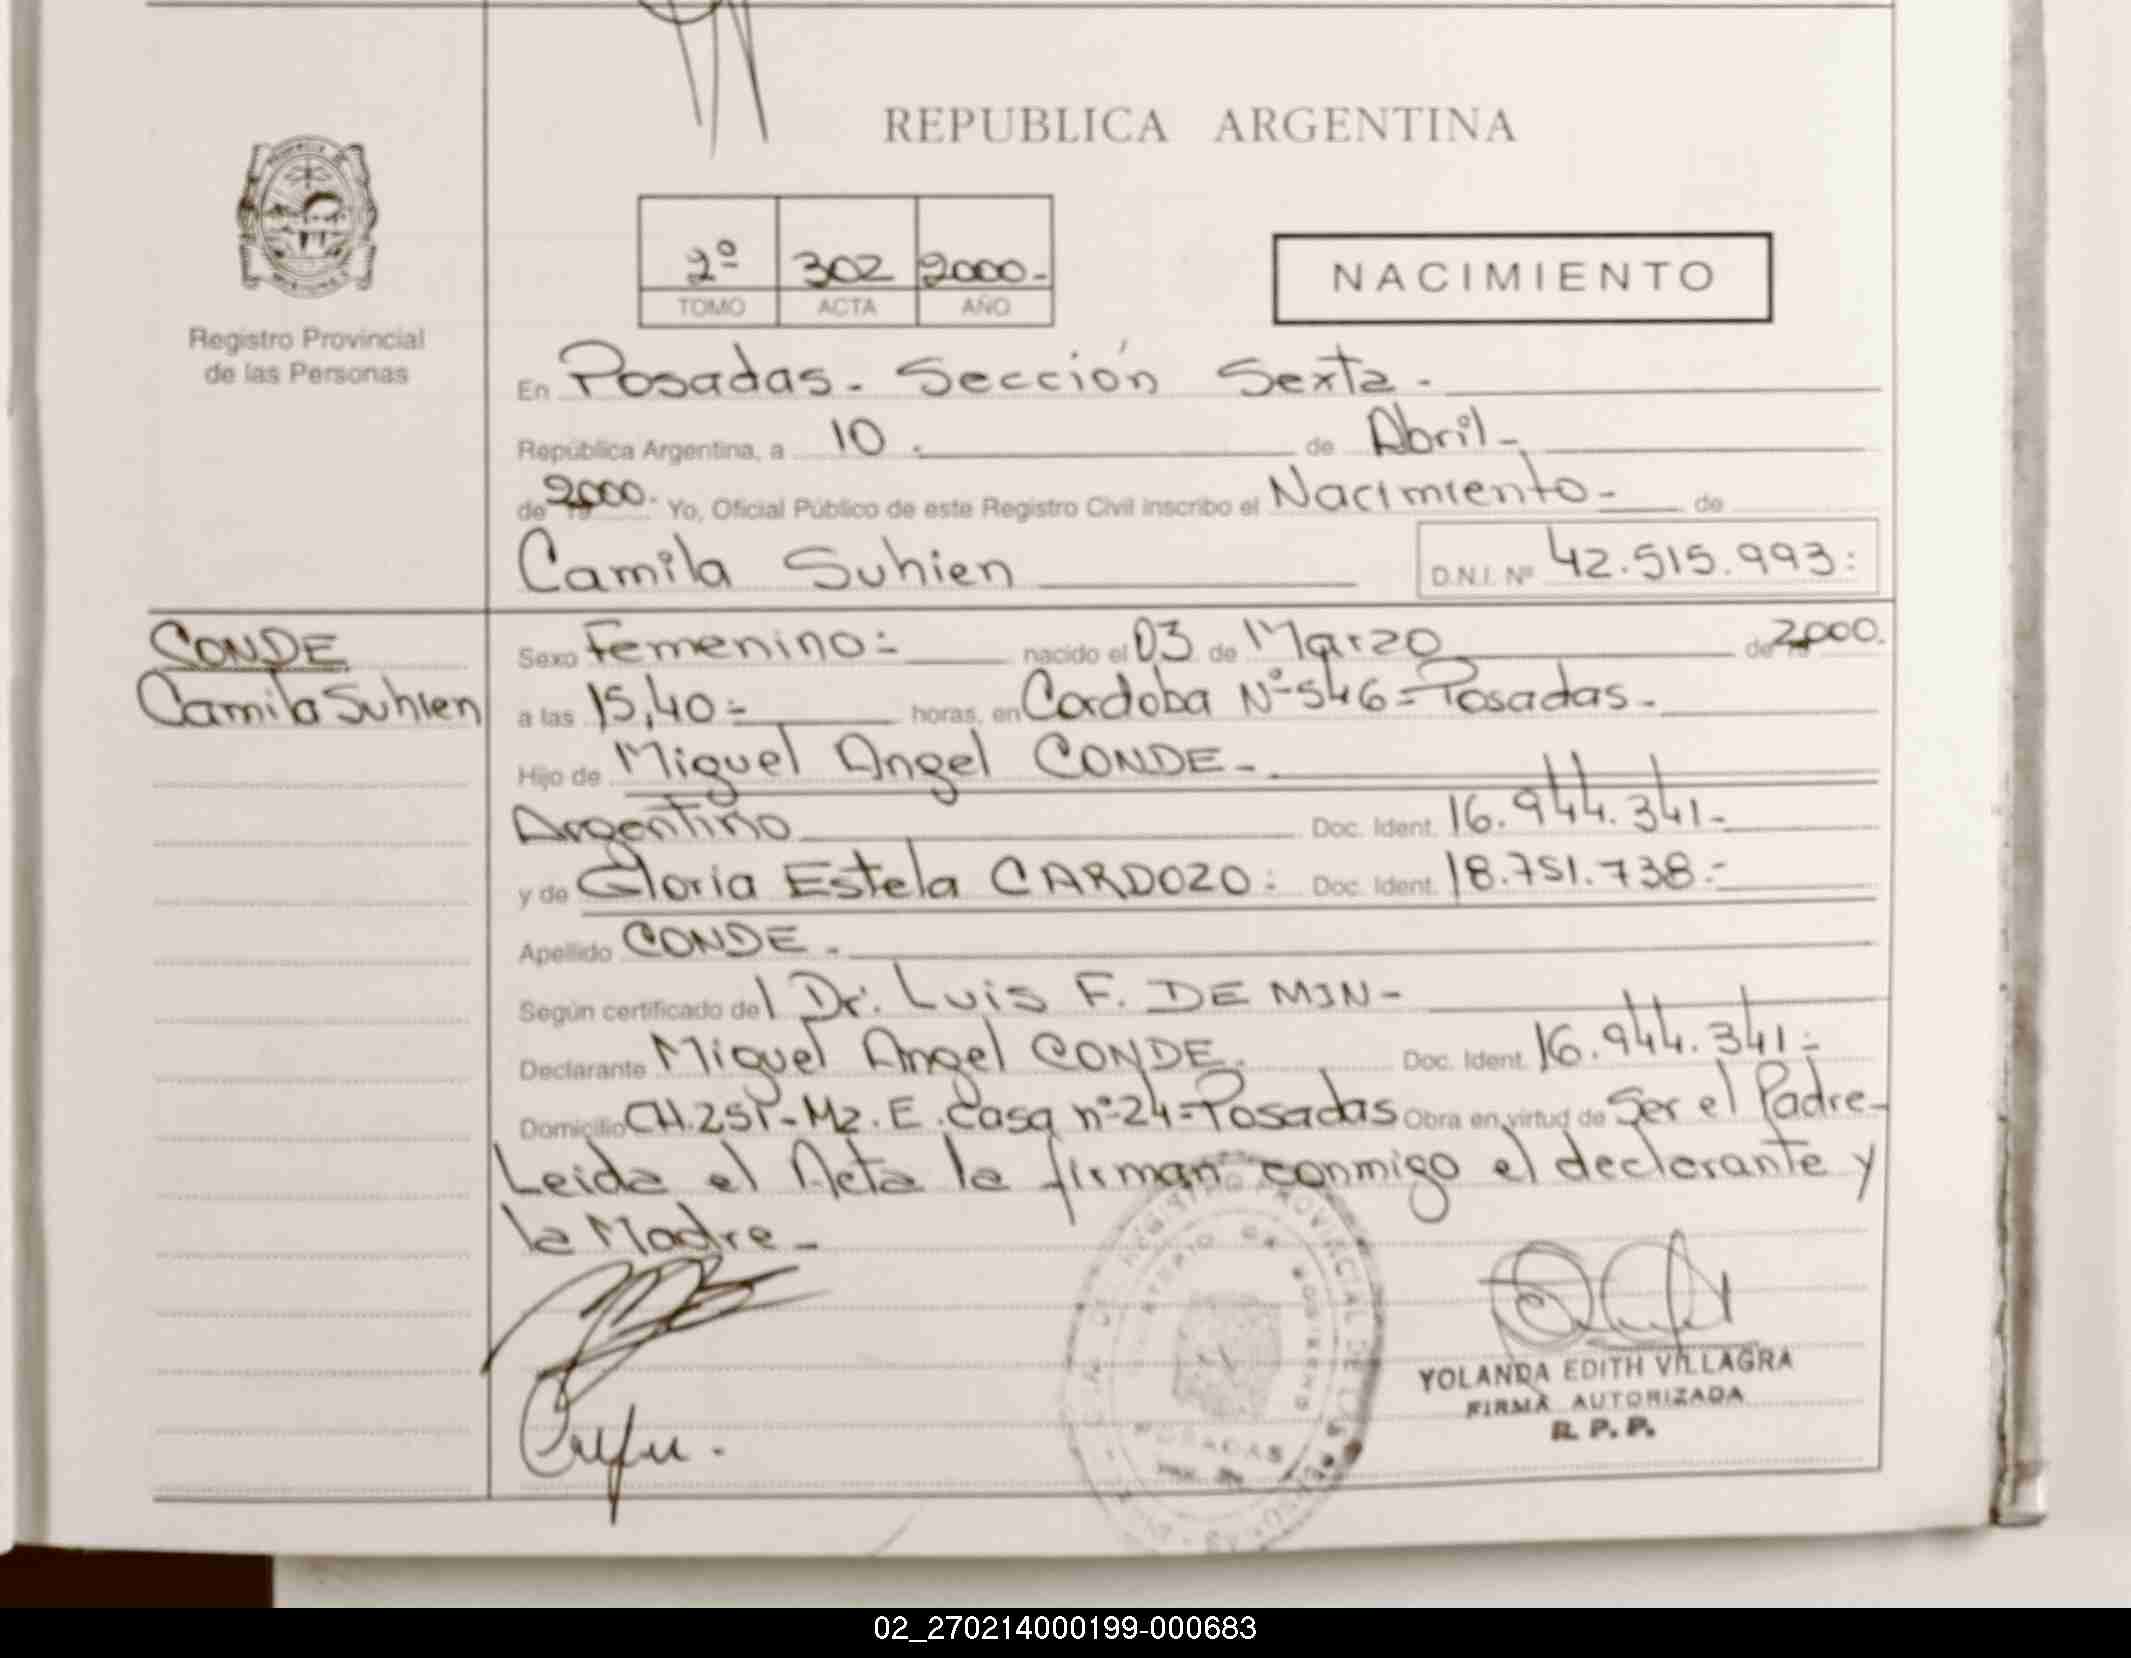 REPUBLICA ARGENTINA
2º 302 2000-
TOMO ACTA AÑO
NACIMIENTO
Registro Provincial
de las Personas
En Posadas - Sección Sexta -
República Argentina, a 10. de Abril-
de 2000. Yo, Oficial Público de este Registro Civil inscribo el Nacimiento- de
Camila Suhien D.N.I. Nº 42.515.993:
CONDE
Camila Suhien
Sexo Femenino:- nacido el 03 de Marzo de 2000.
a las 15,40:- horas, en Cordoba Nº 546 = Posadas-
Hijo de Miguel Angel CONDE-
Argentino Doc. Ident. 16.944.341-
y de Gloria Estela CARDOZO: Doc. Ident. 18.751.738:-
Apellido CONDE-
Según certificado del Dr. Luis F. DE MIN-
Declarante Miguel Angel CONDE. Doc. Ident. 16.944.341:-
Domicilio CH.251-Mz.E.Casa nº 24=Posadas Obra en virtud de Ser el Padre-
Leida el Acta la firman conmigo el declarante y
la Madre-
REGISTRO PROVINCIAL DE LAS
POSADAS
YOLANDA EDITH VILLAGRA
FIRMA AUTORIZADA
R. P. P.
02_270214000199-000683